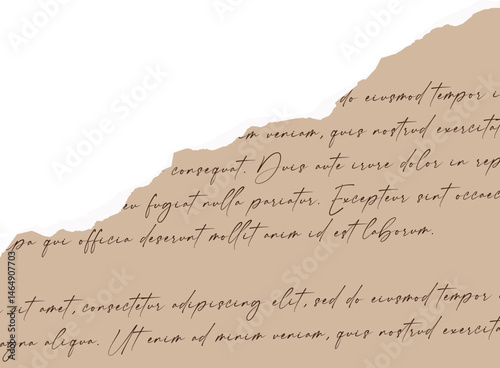 do eiusmod tempor i
m veniam, quis nostrud exercitat
consequat. Duis aute irure dolor in rep
eu fugiat nulla pariatur. Excepteur sint occaec
pa qui officia deserunt mollit anim id est laborum.
sit amet, consectetur adipiscing elit, sed do eiusmod tempor
gna aliqua. Ut enim ad minim veniam, quis nostrud exercita
Adobe Stock | #1464907703